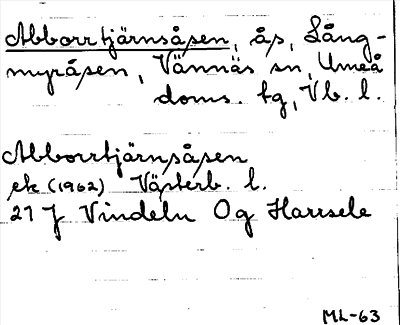 Abborrtjärnsåsen, ås, Lång-
myråsen, Vännäs sn, Umeå
doms. tg, Vb. l.
Abborrtjärnsåsen
ek (1962) Västerb. l.
21 J Vindeln Og Harrsele
ML-63